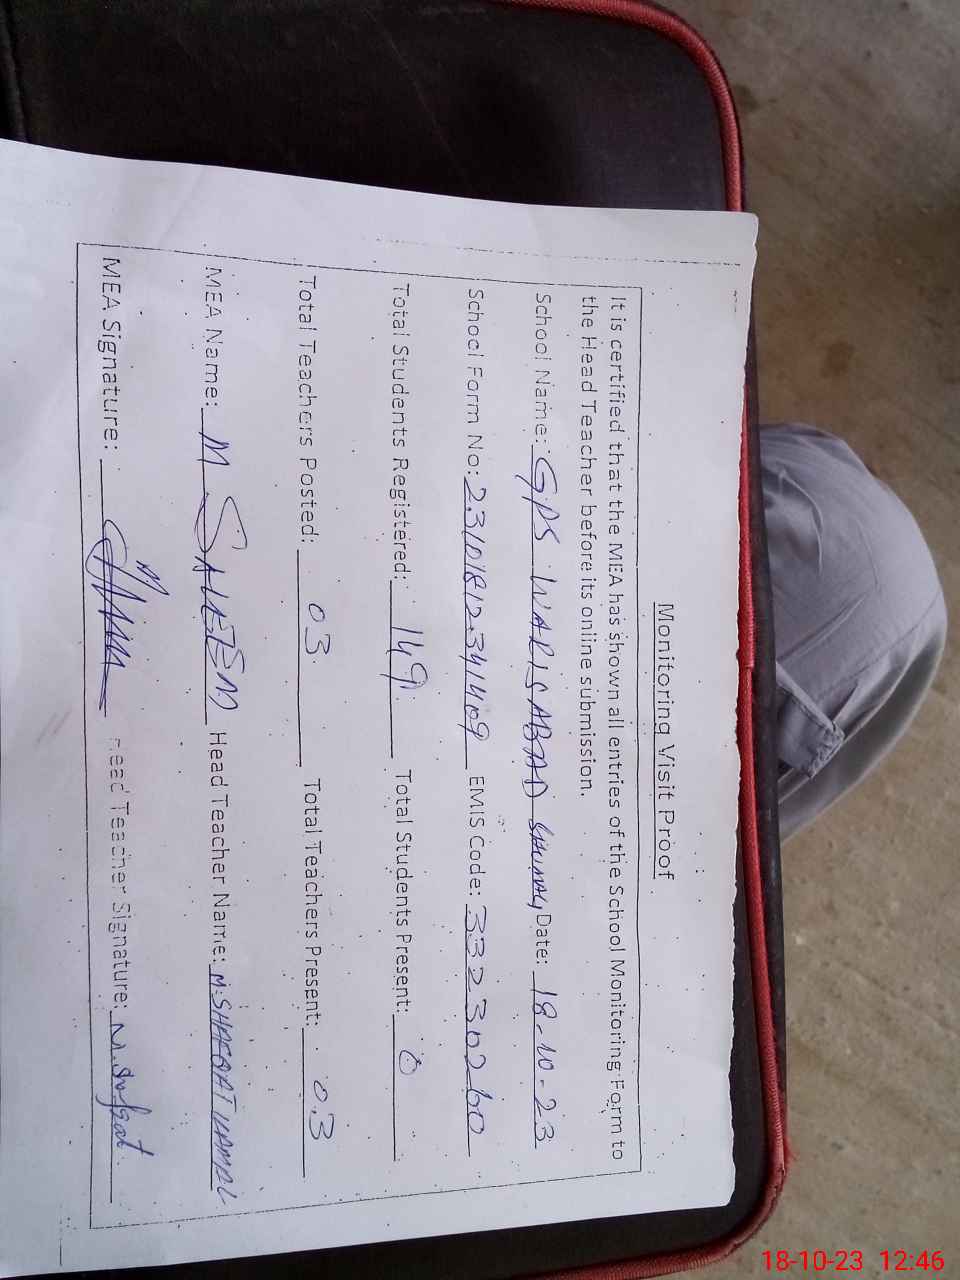 Monitoring Visit Proof
It is certified that the MEA has shown all entries of the School Monitoring Form to
the Head Teacher before its online submission.
School Name: GPS WARISABAD Date: 18-10-23
School Form No: EMIS Code: 33230260
Total Students Registered: 149 Total Students Present: 0
Total Teachers Posted: 03 Total Teachers Present: 03
MEA Name: M SALEEM Head Teacher Name: M.SHAFQAT
MEA Signature: Head Teacher Signature: M.Shafqat
18-10-23 12:46